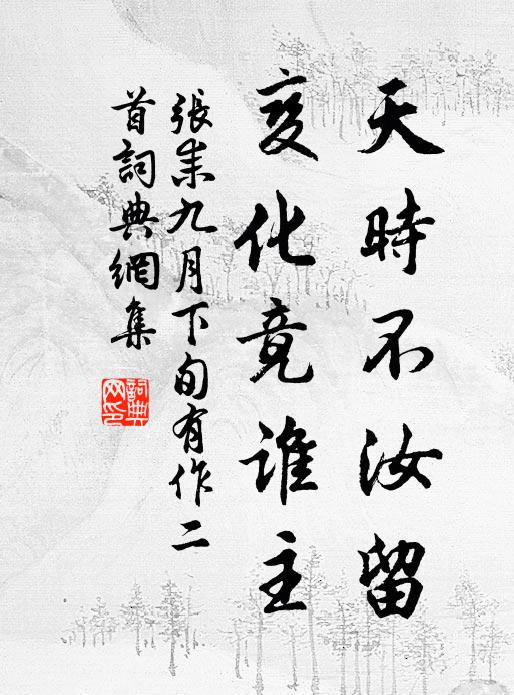 天時不汝留
變化竟誰主
張耒九月下旬有作二
首詞典網集
詞典
网印